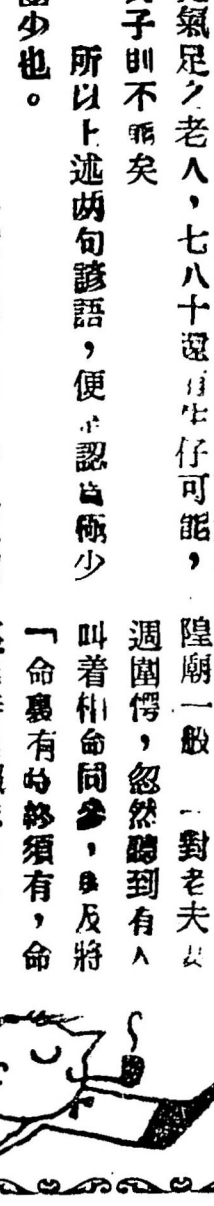 氣足之老人，七八十還有生仔可能，
子則不能矣
所以上述两句諺語，便 認為極少
少也。
隍廟一般 一對老夫
週圍愕，忽然聽到有人
叫着相命同參， 及將
「命裏有時終須有，命